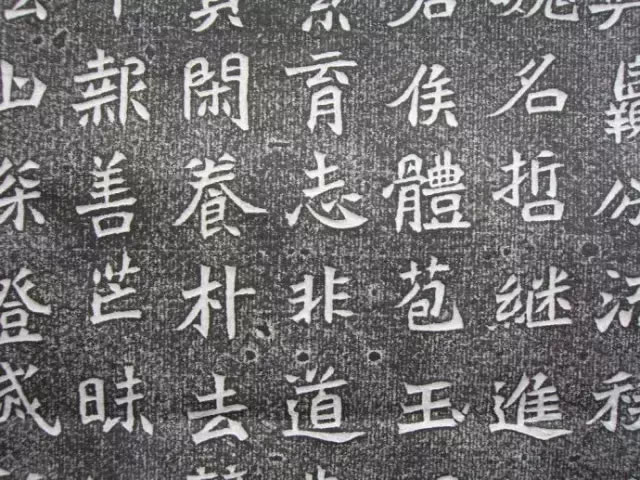 公流
名哲継進
君侯體苞玉
育志非道
閑養朴去
報善芒昧
山登